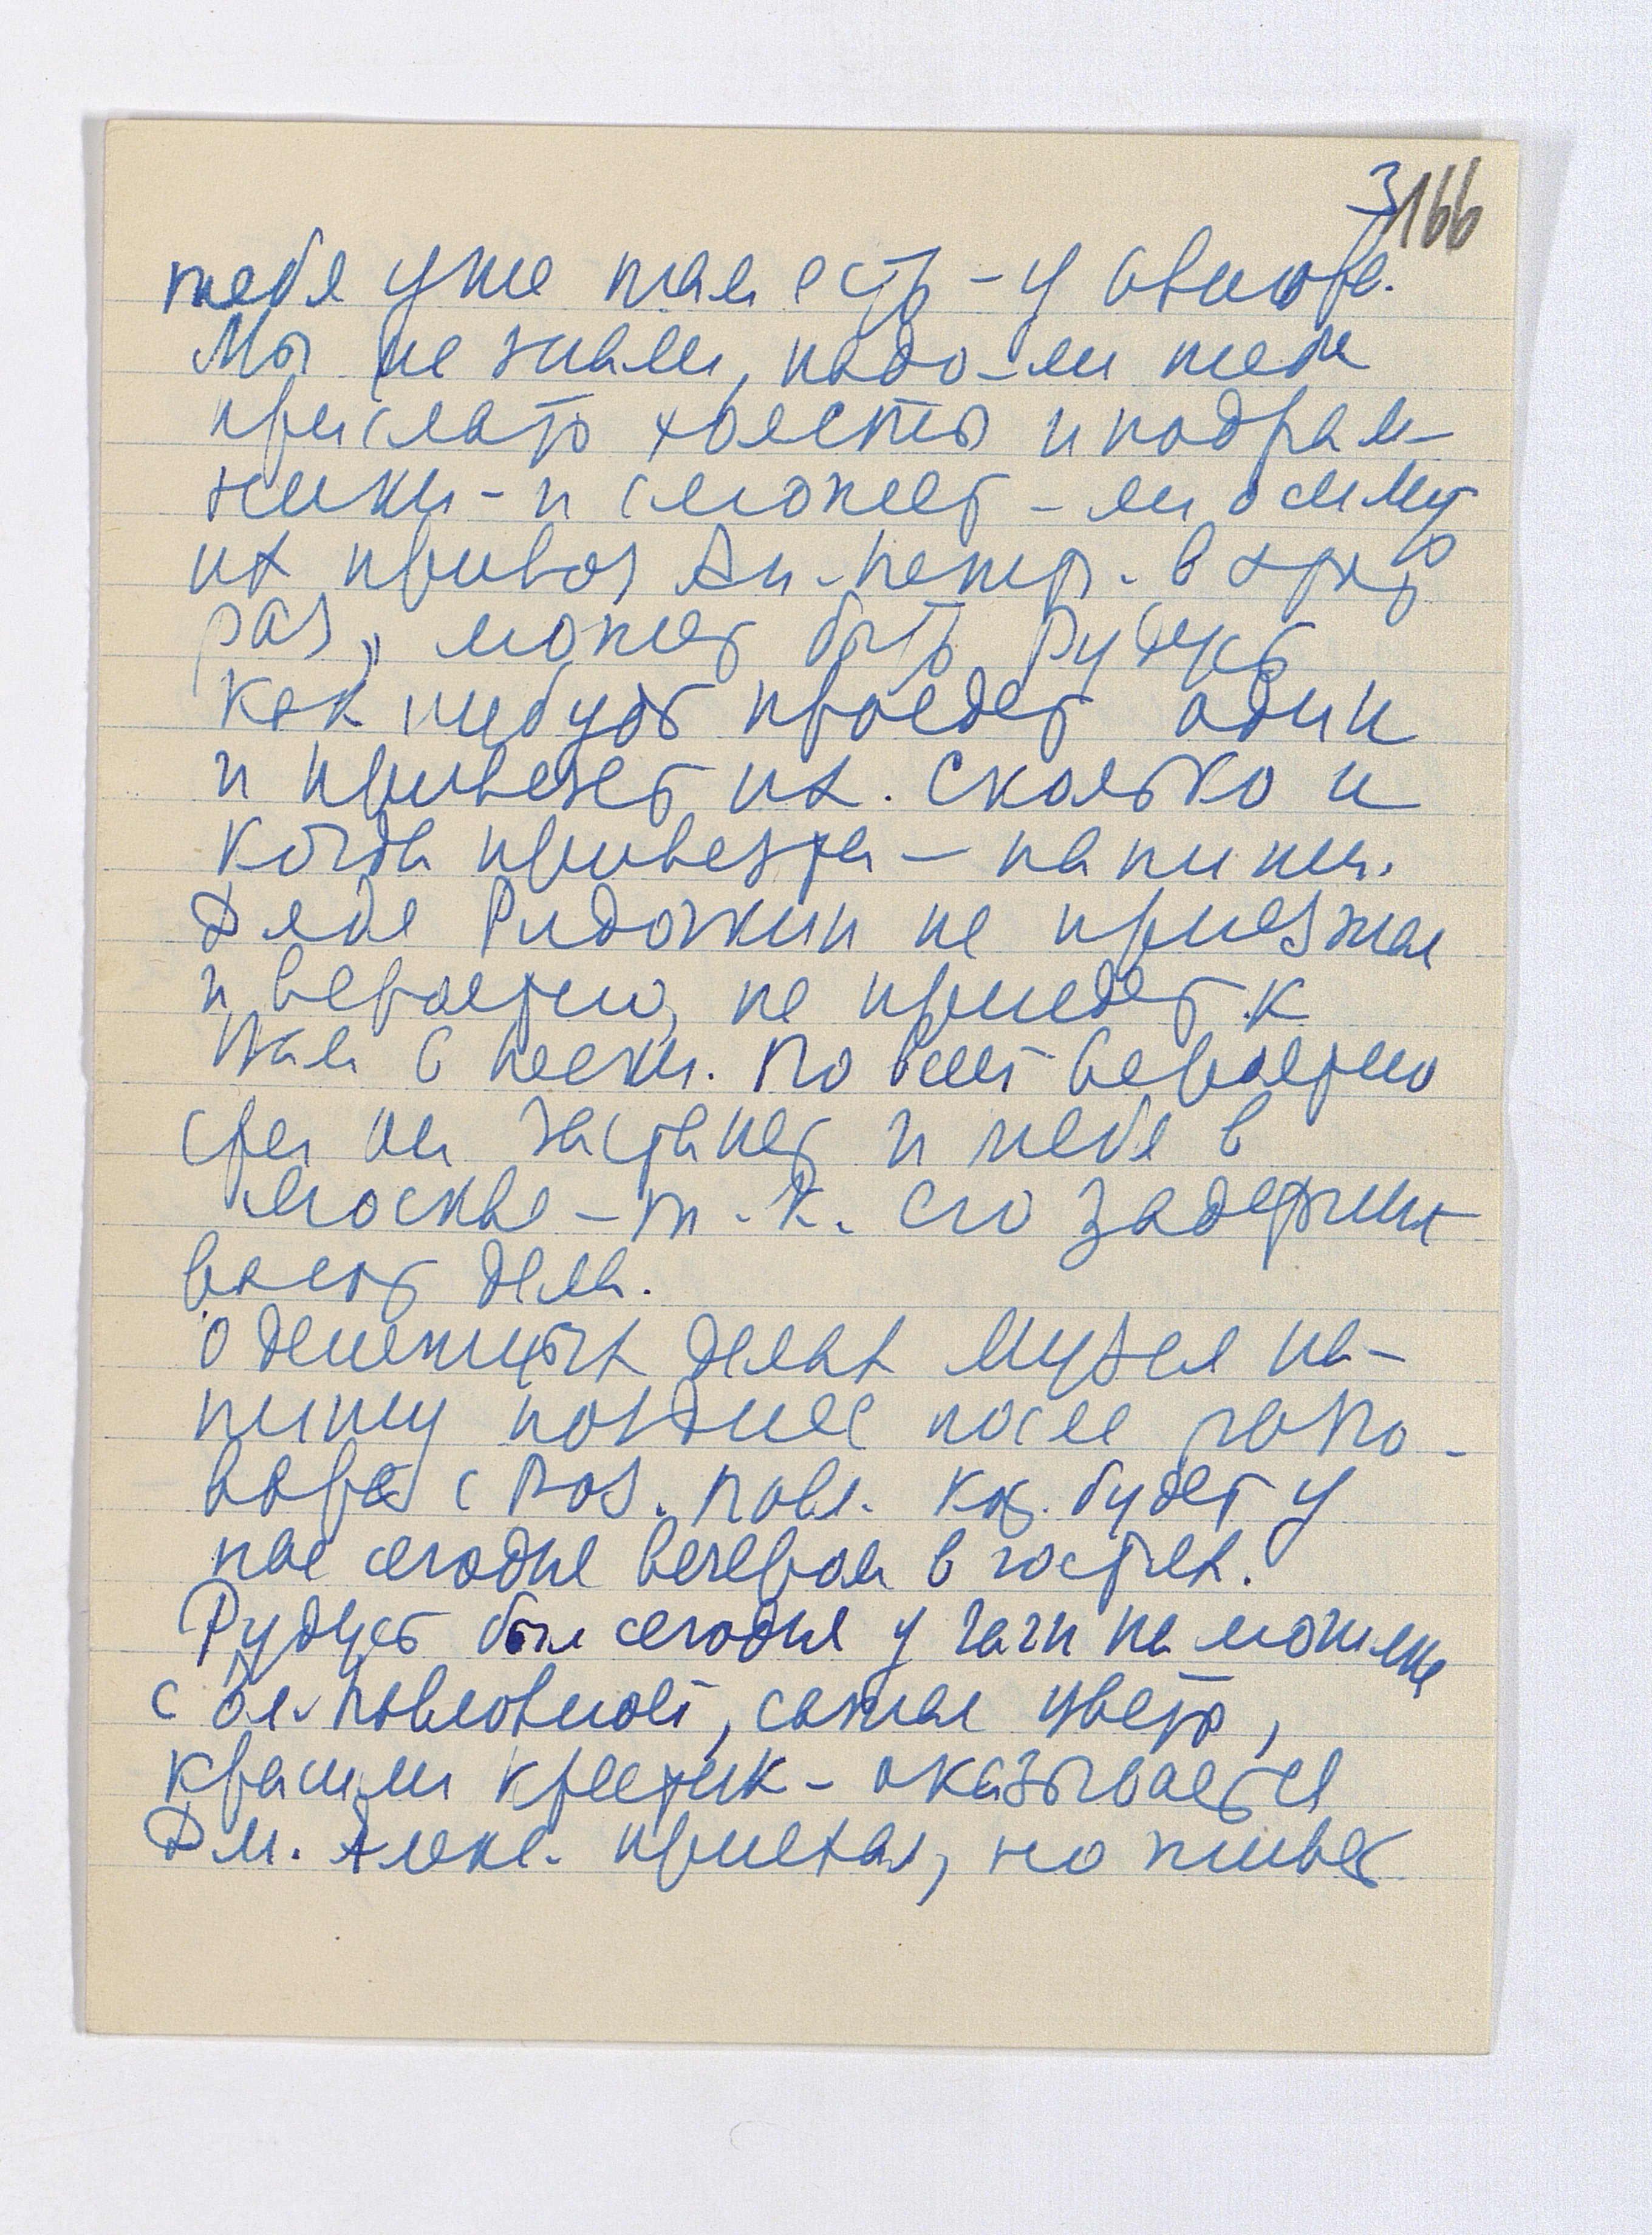 3 166
тебя уже там есть – у
Мы не знали, надо-ли тебе
прислать холсты и подрам-
ники – и сможет – ли
их привоз Ан. Петр. в
раз, может быть Рудусь
как нибудь проедет один
и привезет их. Сколько и
когда привезти – напиши.
Дядя не приезжал
и вероятно, не приедет к
Вам в Пески. По всей вероятно
сти он застанет и тебя в
Москве – т. к. его задержи
вают дела.
О денежных делах Музея на-
пишу позднее после разго-
вора с Поз. Павл. кот. будет у
нас сегодня вечером в гостях.
Рудусь был сегодня у Гаги на могилке
с Ол. Павловной, сажал цветы,
красили крестик – оказывается
Дм. Алекс. приехал, но живет